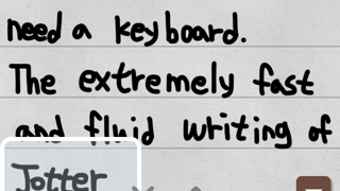 need a keyboard.
The extremely fast
and fluid writing of
Jotter